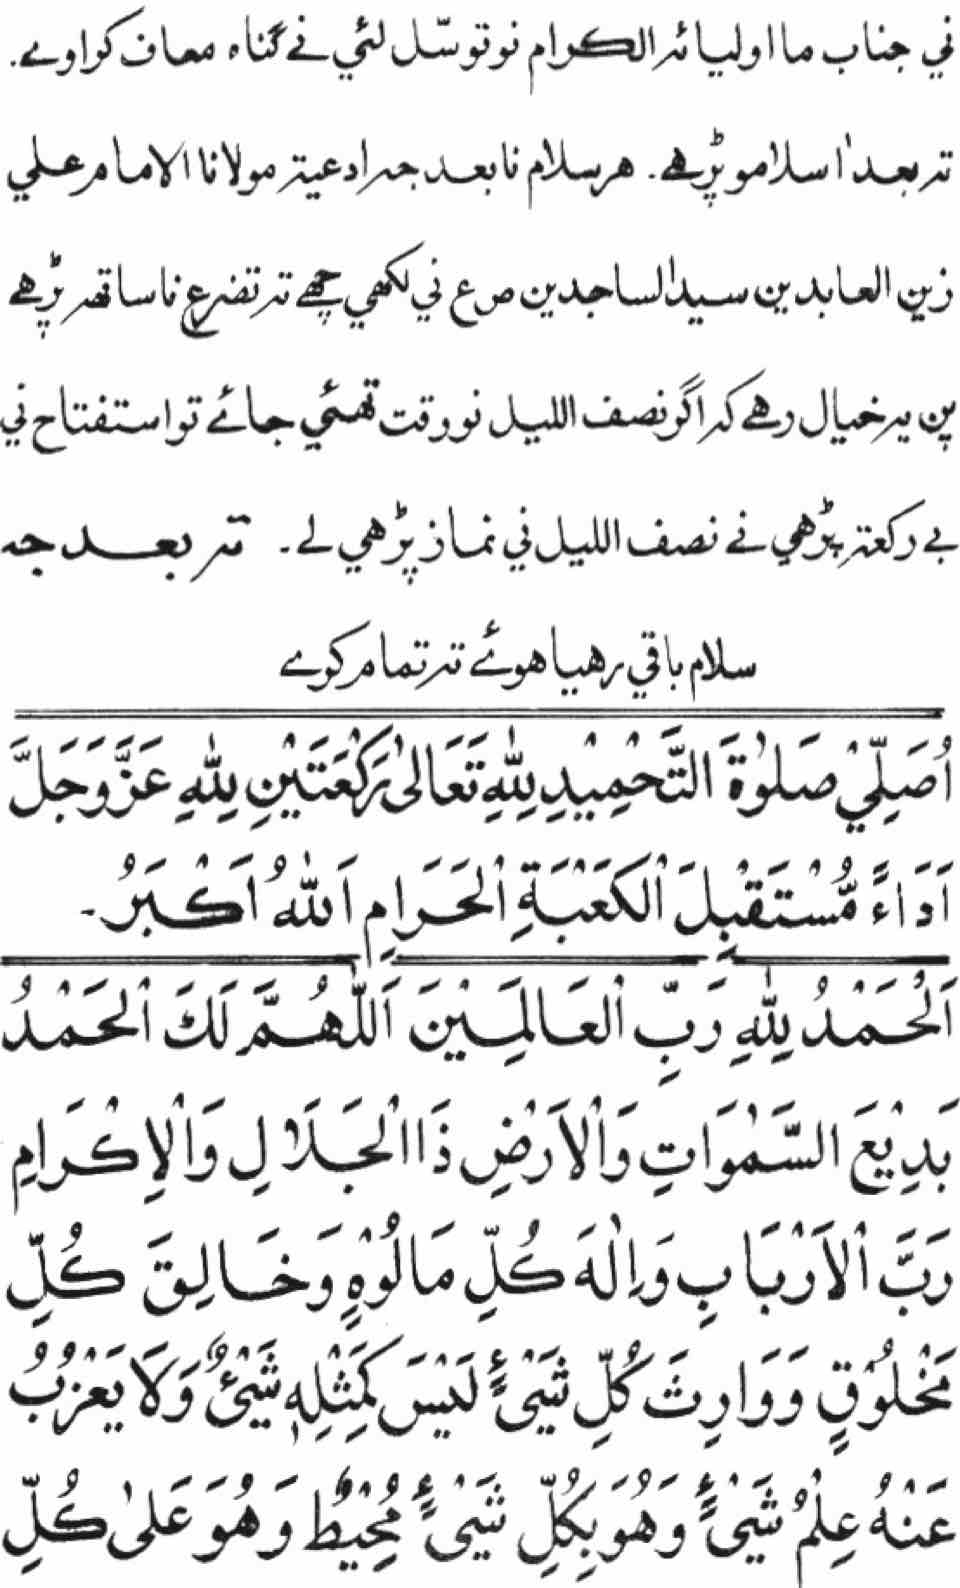 ني جناب ما اوليائه الكرام نو توسّل لئي نے گناه معاف كراوے.
ته بعد ١ سلام و پڑهے. هر سلام نا بعد جه ادعية مولانا الامام علي
زين العابدين سيد الساجدين ص ع ني لكهي چهے ته تضرع نا ساتهه پڑهے
پن يه خيال رهے كه اگر نصف الليل نو وقت تهئي جائے تو استفتاح ني
بے ركعة پڑهي نے نصف الليل ني نماز پڑهي لے ۔ ته بعد جه
سلام باقي رهيا هوئے ته تمام كرے
اُصَلِّيْ صَلٰوةَ التَّحْمِيْدِ لِلّٰهِ تَعَالىٰ رَكْعَتَيْنِ لِلّٰهِ عَزَّ وَجَلَّ
اَدَاءً مُّسْتَقْبِلَ الْكَعْبَةِ الْحَرَامِ اَللّٰهُ اَكْبَرُ ۔
اَلْحَمْدُ لِلّٰهِ رَبِّ الْعَالَمِيْنَ اَللّٰهُمَّ لَكَ الْحَمْدُ
بَدِيْعَ السَّمٰوَاتِ وَالْاَرْضِ ذَا الْجَلَالِ وَالْاِكْرَامِ
رَبَّ الْاَرْبَابِ وَاِلٰهَ كُلِّ مَالُوْهٍ وَخَالِقَ كُلِّ
مَخْلُوْقٍ وَوَارِثَ كُلِّ شَيْءٍ لَيْسَ كَمِثْلِهٖ شَيْءٌ وَلَا يَعْزُبُ
عَنْهُ عِلْمُ شَيْءٍ وَهُوَ بِكُلِّ شَيْءٍ مُحِيْطٌ وَهُوَ عَلىٰ كُلِّ